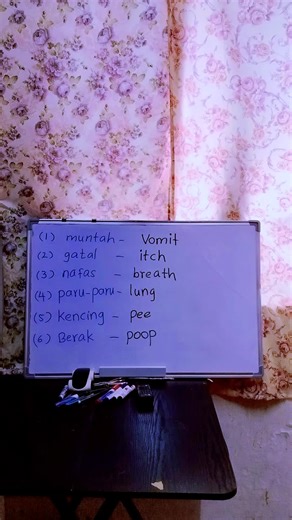 (1) muntah - Vomit
(2) gatal - itch
(3) nafas - breath
(4) paru-paru - lung
(5) Kencing - pee
(6) Berak - poop